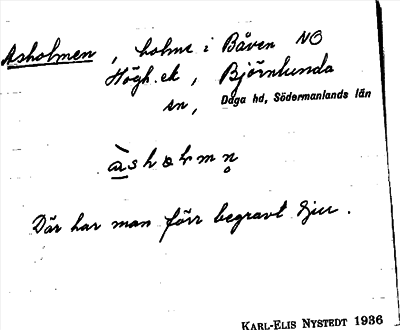 Asholmen, holme i Båven NO
Högh. ek, Björnlunda
sn, Daga hd, Södermanlands län
àshɷlmn̥
Där har man förr begravt djur.
KARL-ELIS NYSTEDT 1936